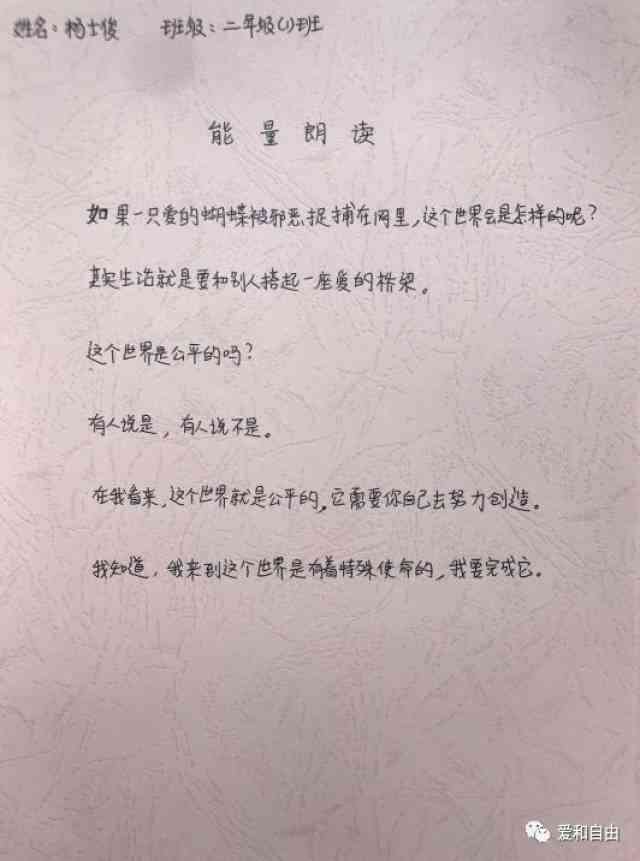 姓名：杨士俊 班级：二年级(1)班
能量朗读
如果一只爱的蝴蝶被邪恶捉捕在网里，这个世界会是怎样的呢？
其实生活就是要和别人搭起一座爱的桥梁。
这个世界是公平的吗？
有人说是，有人说不是。
在我看来，这个世界就是公平的，它需要你自己去努力创造。
我知道，我来到这个世界是有着特殊使命的，我要完成它。
爱和自由